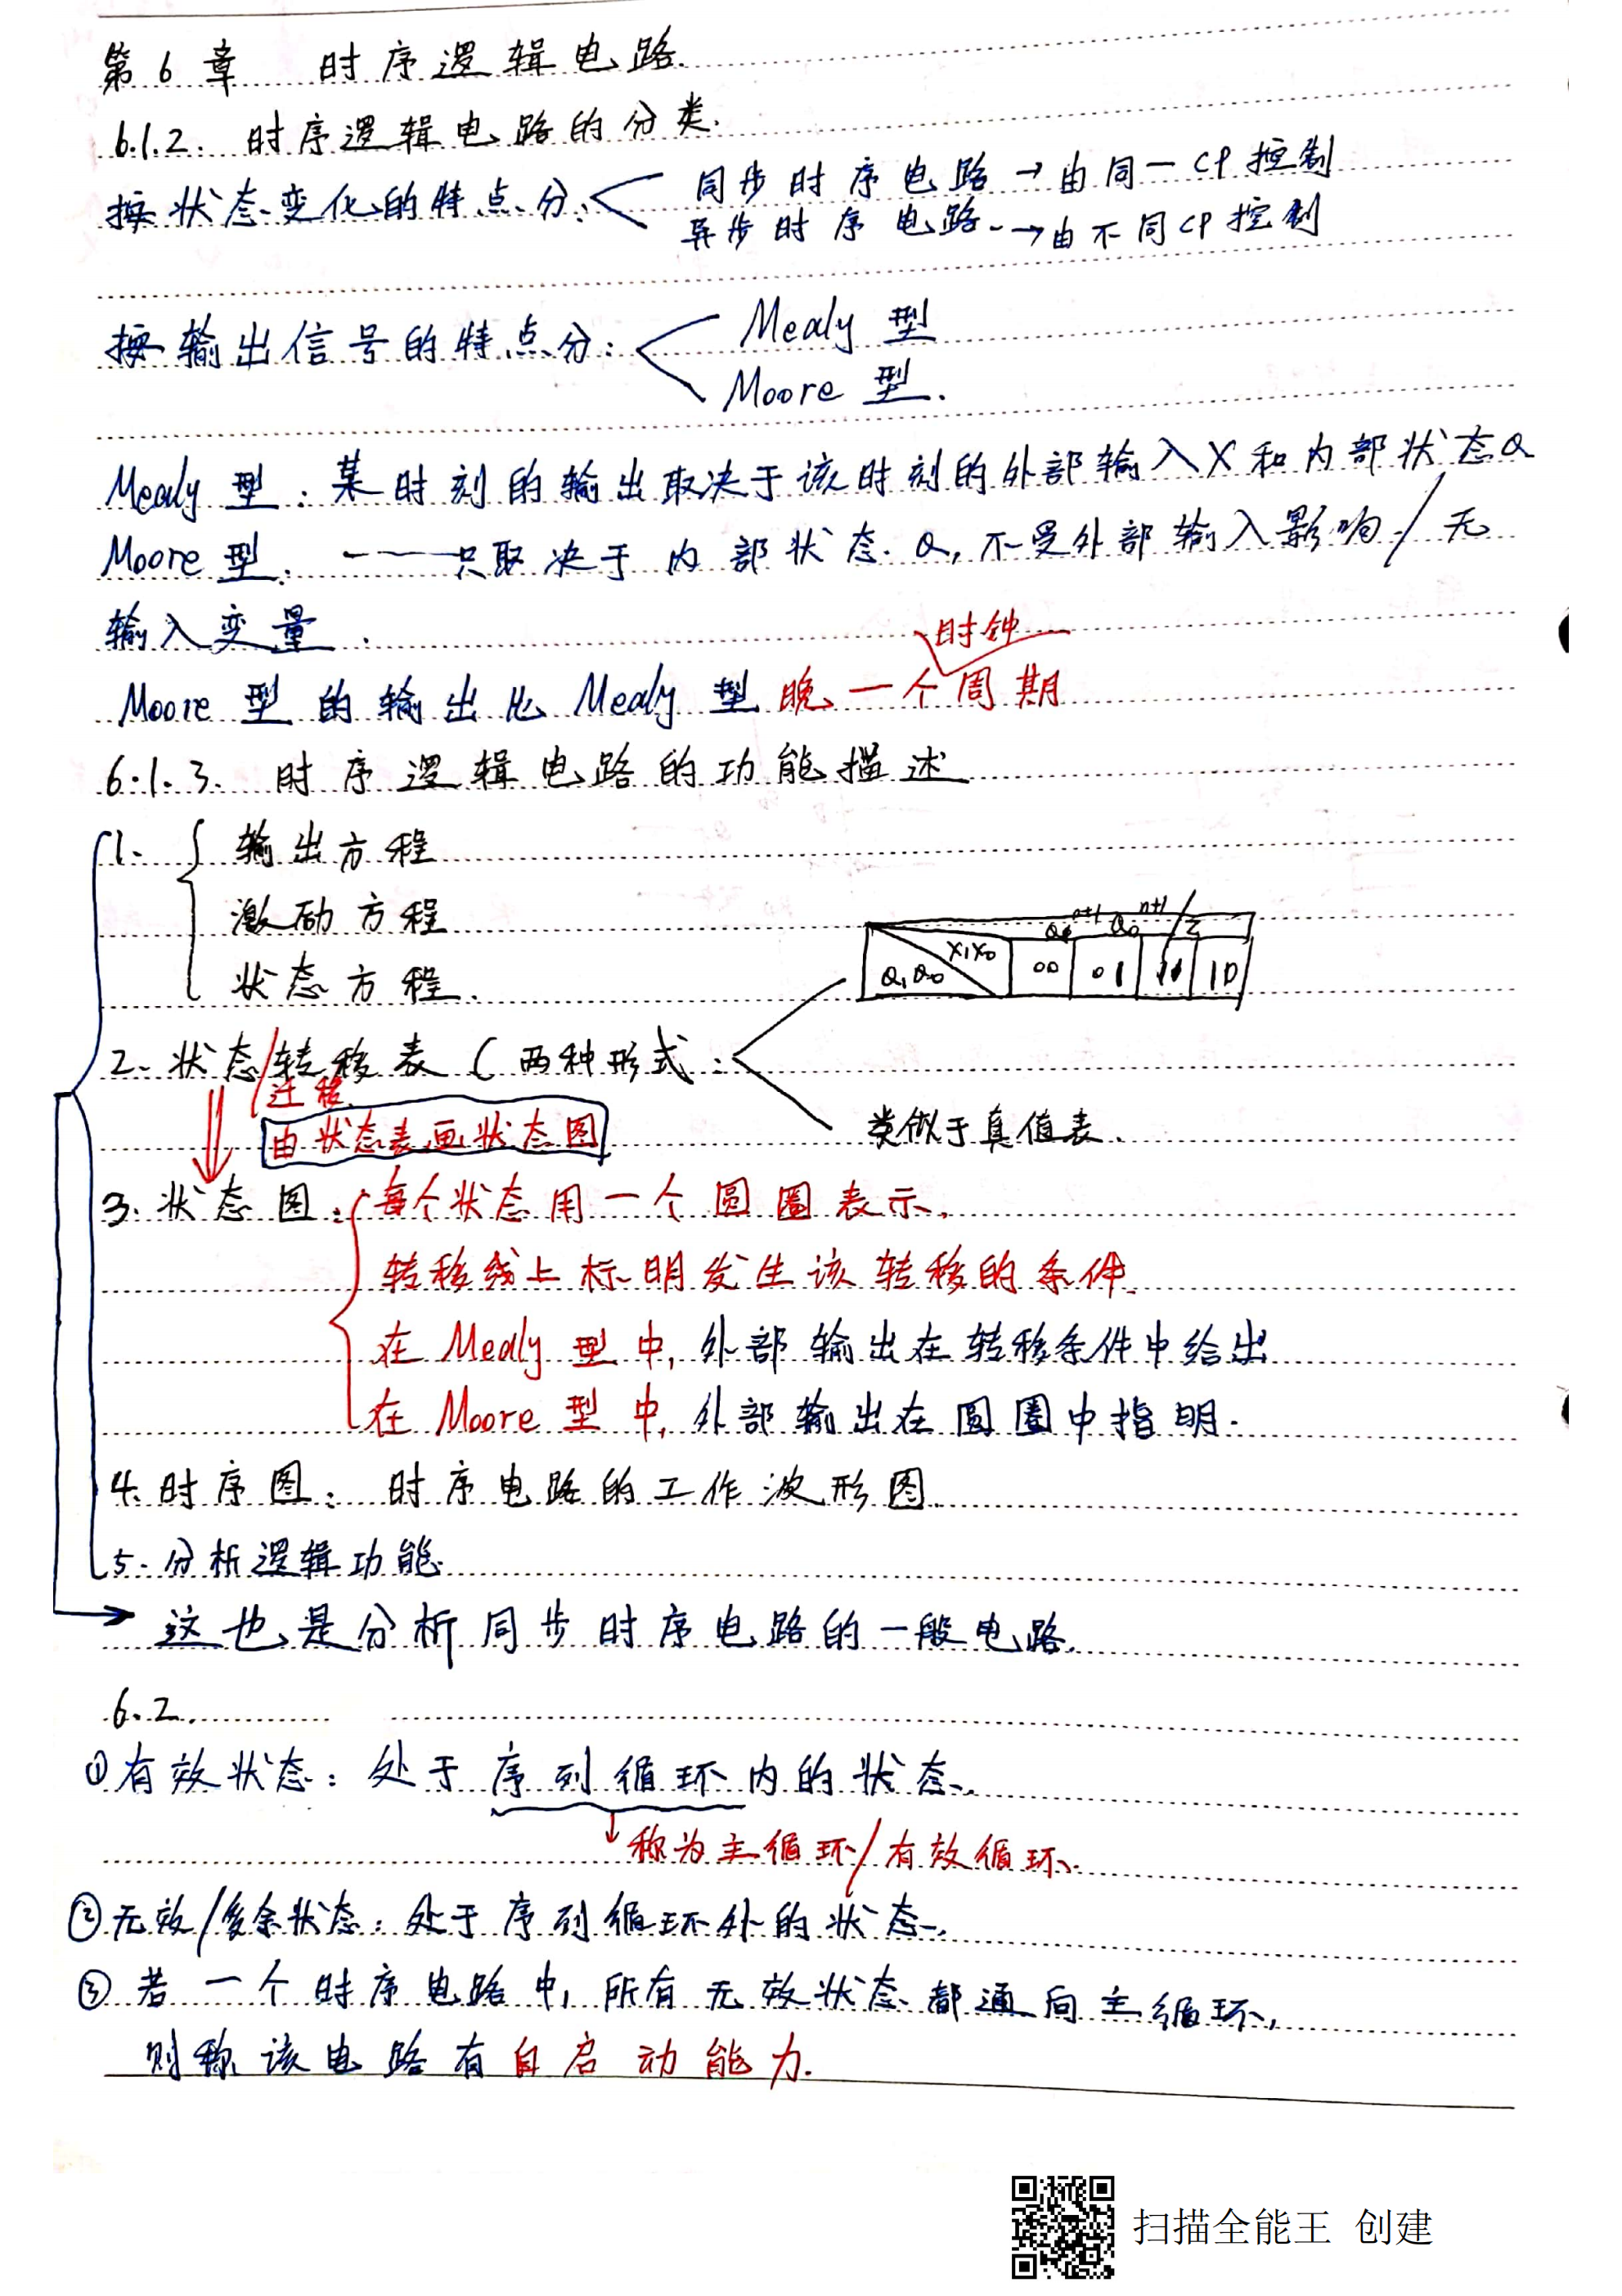 第6章 时序逻辑电路.
6.1.2. 时序逻辑电路的分类.
按状态变化的特点分: 同步时序电路→由同一CP控制
异步时序电路→由不同CP控制
按输出信号的特点分: Mealy型
Moore型.
Mealy型: 某时刻的输出取决于该时刻的外部输入X和内部状态Q
Moore型: ——只取决于内部状态Q, 不受外部输入影响/无
输入变量.
时钟
Moore型的输出比Mealy型晚一个周期
6.1.3. 时序逻辑电路的功能描述
1. 输出方程
激励方程
状态方程.
Q₁ⁿ⁺¹ Q₀ⁿ⁺¹/Z
Q₁Q₀ X₁X₀ 00 01 11 10
2. 状态/转移表 (两种形式:
迁移
由状态表画状态图
类似于真值表.
3. 状态图: 每个状态用一个圆圈表示.
转移线上标明发生该转移的条件.
在Mealy型中, 外部输出在转移条件中给出
在Moore型中, 外部输出在圆圈中指明.
4. 时序图: 时序电路的工作波形图.
5. 分析逻辑功能.
→这也是分析同步时序电路的一般电路.
6.2.
①有效状态: 处于序列循环内的状态.
↓称为主循环/有效循环.
②无效/多余状态: 处于序列循环外的状态.
③若一个时序电路中, 所有无效状态都通向主循环,
则称该电路有自启动能力.
扫描全能王 创建